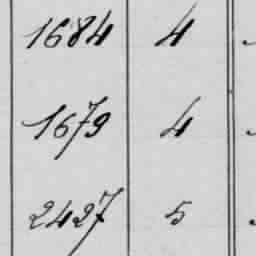 1684 4
1679 4
2427 5